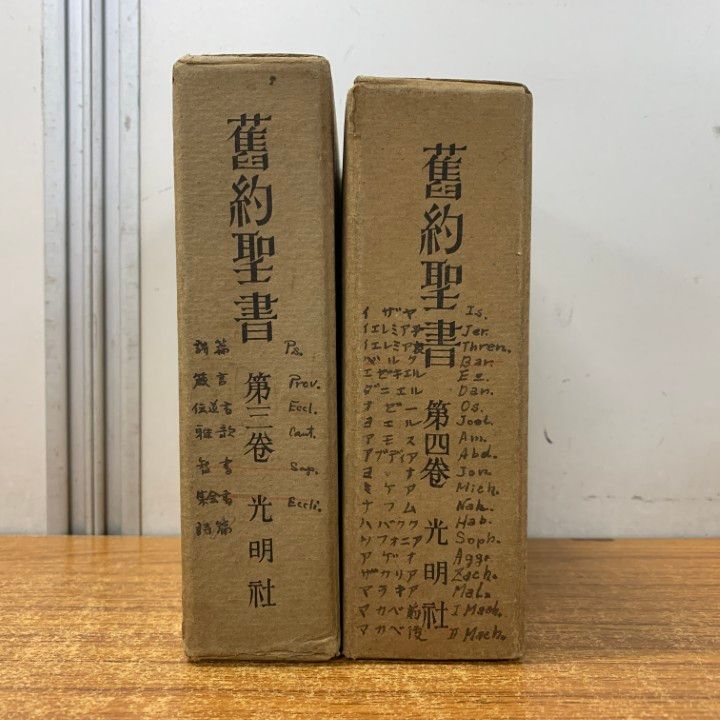 舊約聖書
第三卷
光明社
詩篇 Ps.
箴言 Prov.
伝道書 Eccl.
雅歌 Cant.
智書 Sap.
集会書 Eccli.
詩篇
舊約聖書
第四卷
光明社
イザヤ Is.
イエレミア予 Jer.
イエレミア哀 Thren.
バルク Bar.
エゼキエル Ez.
ダニエル Dan.
オゼー Os.
ヨエル Joel.
アモス Am.
アブディア Abd.
ヨナ Jon.
ミケア Mich.
ナフム Nah.
ハバクク Hab.
ソフォニア Soph.
アゲオ Agg.
ザカリア Zach.
マラキア Mal.
マカベ前 I Mach.
マカベ後 II Mach.